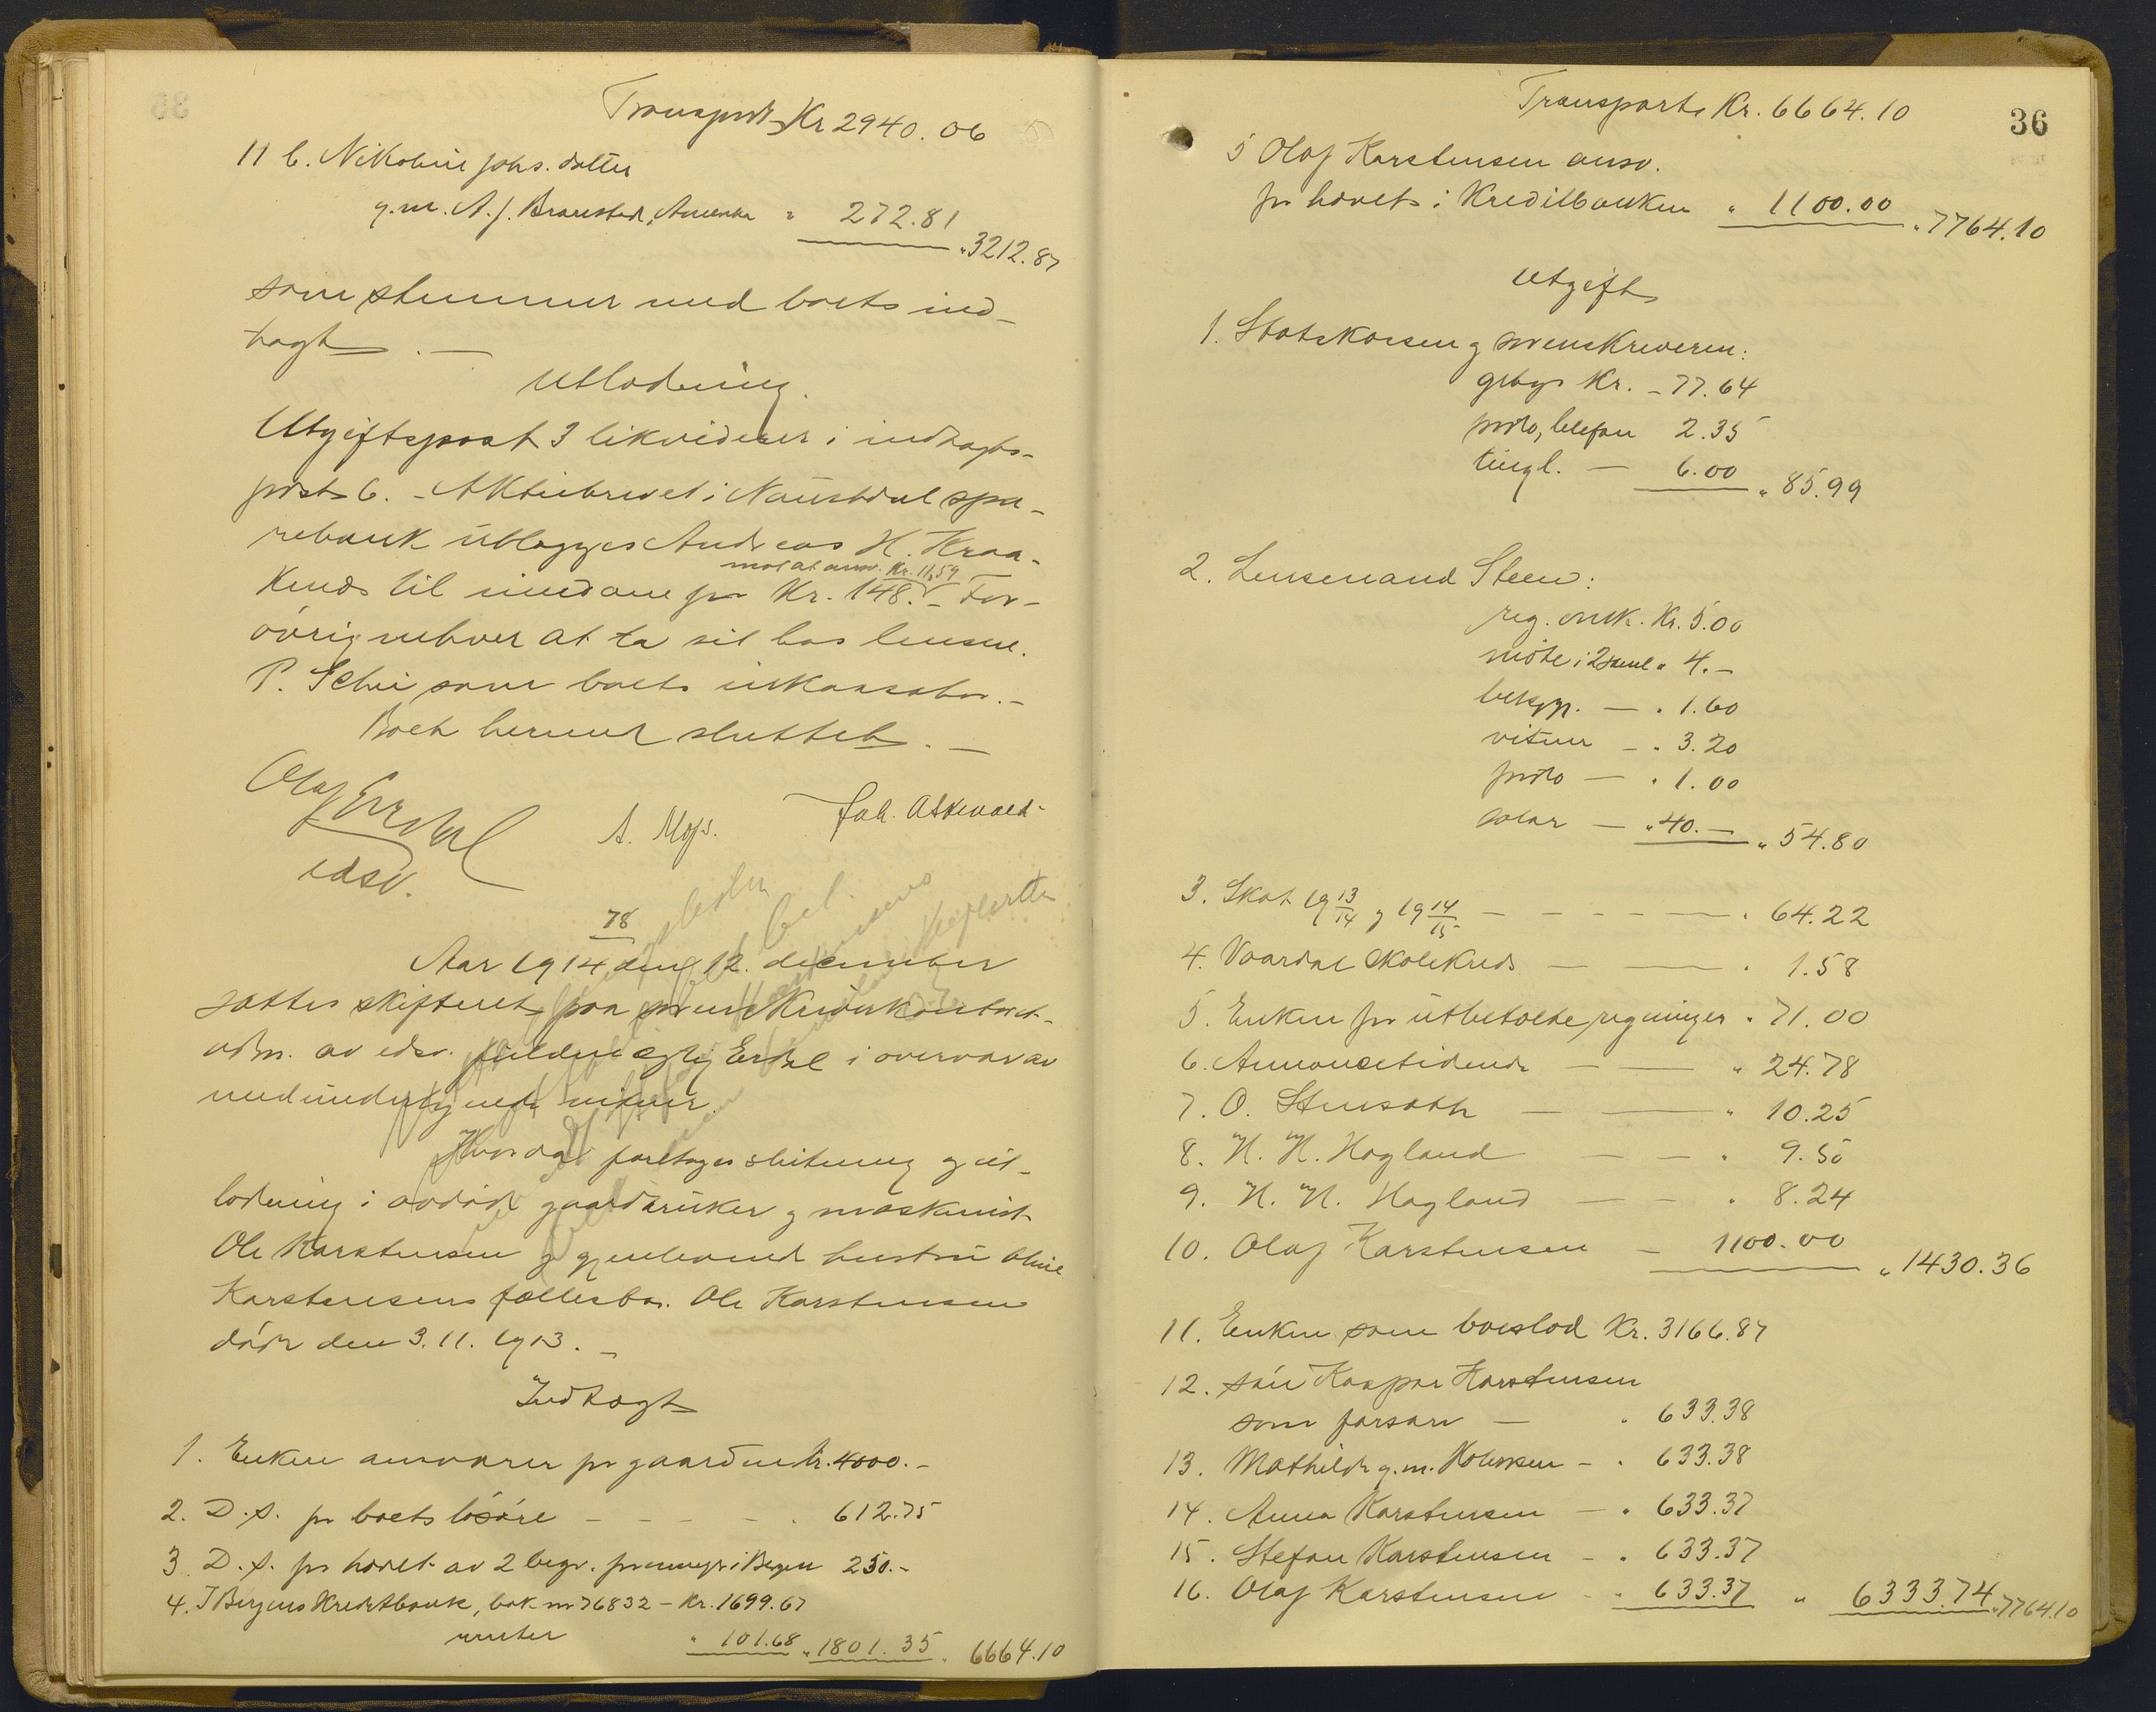 Transport Kr 2940.06
11 b. Nikoline Johs.datter
g.m. A.J. Branstad, Amerika " 272.81
" 3212.87
som stemmer med boets ind-
tægt. —
Utlodning.
Utgiftspost 3 likviderer i indtægts-
post 6. - Aktiebrevet i Naustdal spa-
rebank utlægges Andreas H. Kraa-
mot at ansv. Kr. 11,59
kenes til inddane for Kr. 148. - For-
øvrig enhver at ta sit hos lensm.
P. Schei som boets inkassator. -
Boet hermed sluttet. —
Olaj Erdal
edsv.
A. Mys.
Joh. Askevold
78
Aar 1914 den 12. december
sattes skifteret paa sorenskriverkontoret
adm. av edsv. fuldmægtig Erdal i overvær av
medundertegnede vidner.
Hvorda foretages slutning og ut-
lodning i avdøde gaardbruker og maskinist
Ole Karstensen og gjenlevende hustru Oline
Karstensens fællesbo. Ole Karstensen
døde den 3.11.1913. -
Indtægt
1. Enken ansvarer for gaarden kr. 4000. -
2. D.s. for boets løsøre - - - - " 612.75
3. D.s. for hovet av 2 begr. penger i Bergen 250. -
4. I Bergens Kreditbank, bok nr 76832 - Kr. 1699.67
renter " 101.68 " 1801.35 " 6664.10
36
Transport Kr. 6664.10
5 Olaf Karstensen ansv.
for hævet i Kreditbanken " 1100.00 " 7764.10
Utgift
1. Statskassen og sorenskriveren:
gebyr Kr. - 77.64
porto, telefon 2.35
tingl. — 6.00 " 85.99
2. Lensmand Steen:
reg. omk. Kr. 5.00
møte i 2 saml " 4. -
bekjgj. — " 1.60
vitner - " 3.20
porto — " 1.00
salær — " 40. — " 54.80
3. Skat 19 13/14 og 19 14/15 - - - - — " 64.22
4. Vaardal skolekreds — — " 1.58
5. Enken for utbetalte regninger " 71.00
6. Annoncetidende — — " 24.78
7. O. Stensæth — — " 10.25
8. H. H. Hogland — — " 9.50
9. H. H. Hagland — — " 8.24
10. Olaf Karstensen — 1100.00 " 1430.36
11. Enken som boeslod Kr. 3166.87
12. søn Kaspar Karstensen
som farsarv — " 633.38
13. Mathilde g.m. - " 633.38
14. Anna Karstensen — " 633.37
15. Stefan Karstensen - " 633.37
16. Olaf Karstensen - " 633.37 " 6333.74 " 7764.10